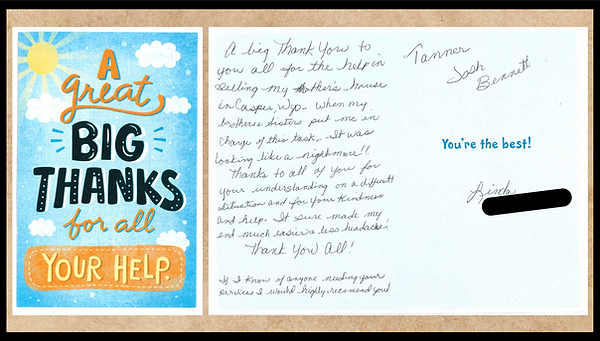 A
great,
BIG
THANKS
for all
YOUR HELP.
A big Thank You to
you all for the help in
selling my Mother's house
in Casper, Wyo. When my
brother & sisters put me in
charge of this task, - It was
looking like a nightmare!!
Thanks to all of you for
your understanding on a difficult
situation and for your kindness
and help. It sure made my
end much easier & less headache!
Thank You All!
If I know of anyone needing your
services I would highly recommend you!
Tanner
Josh
Bennett
You're the best!